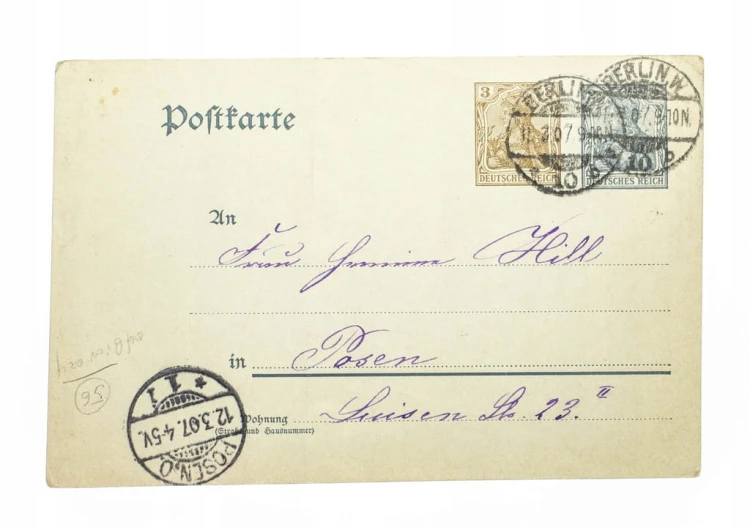 Postkarte
3
DEUTSCHES REICH
DEUTSCHES REICH
BERLIN.W.
10
BERLIN.W.
An
Frau Hermine Hill
in Posen
Wohnung
(Straße und Hausnummer)
Luisen Str. 23. II
56
1
12.3.07.4-5V.
POSEN.O